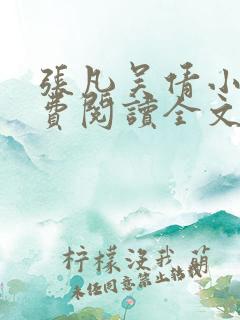 張凡吴倩小
費閱讀全文
柠檬没我萌
未经同意禁止转载